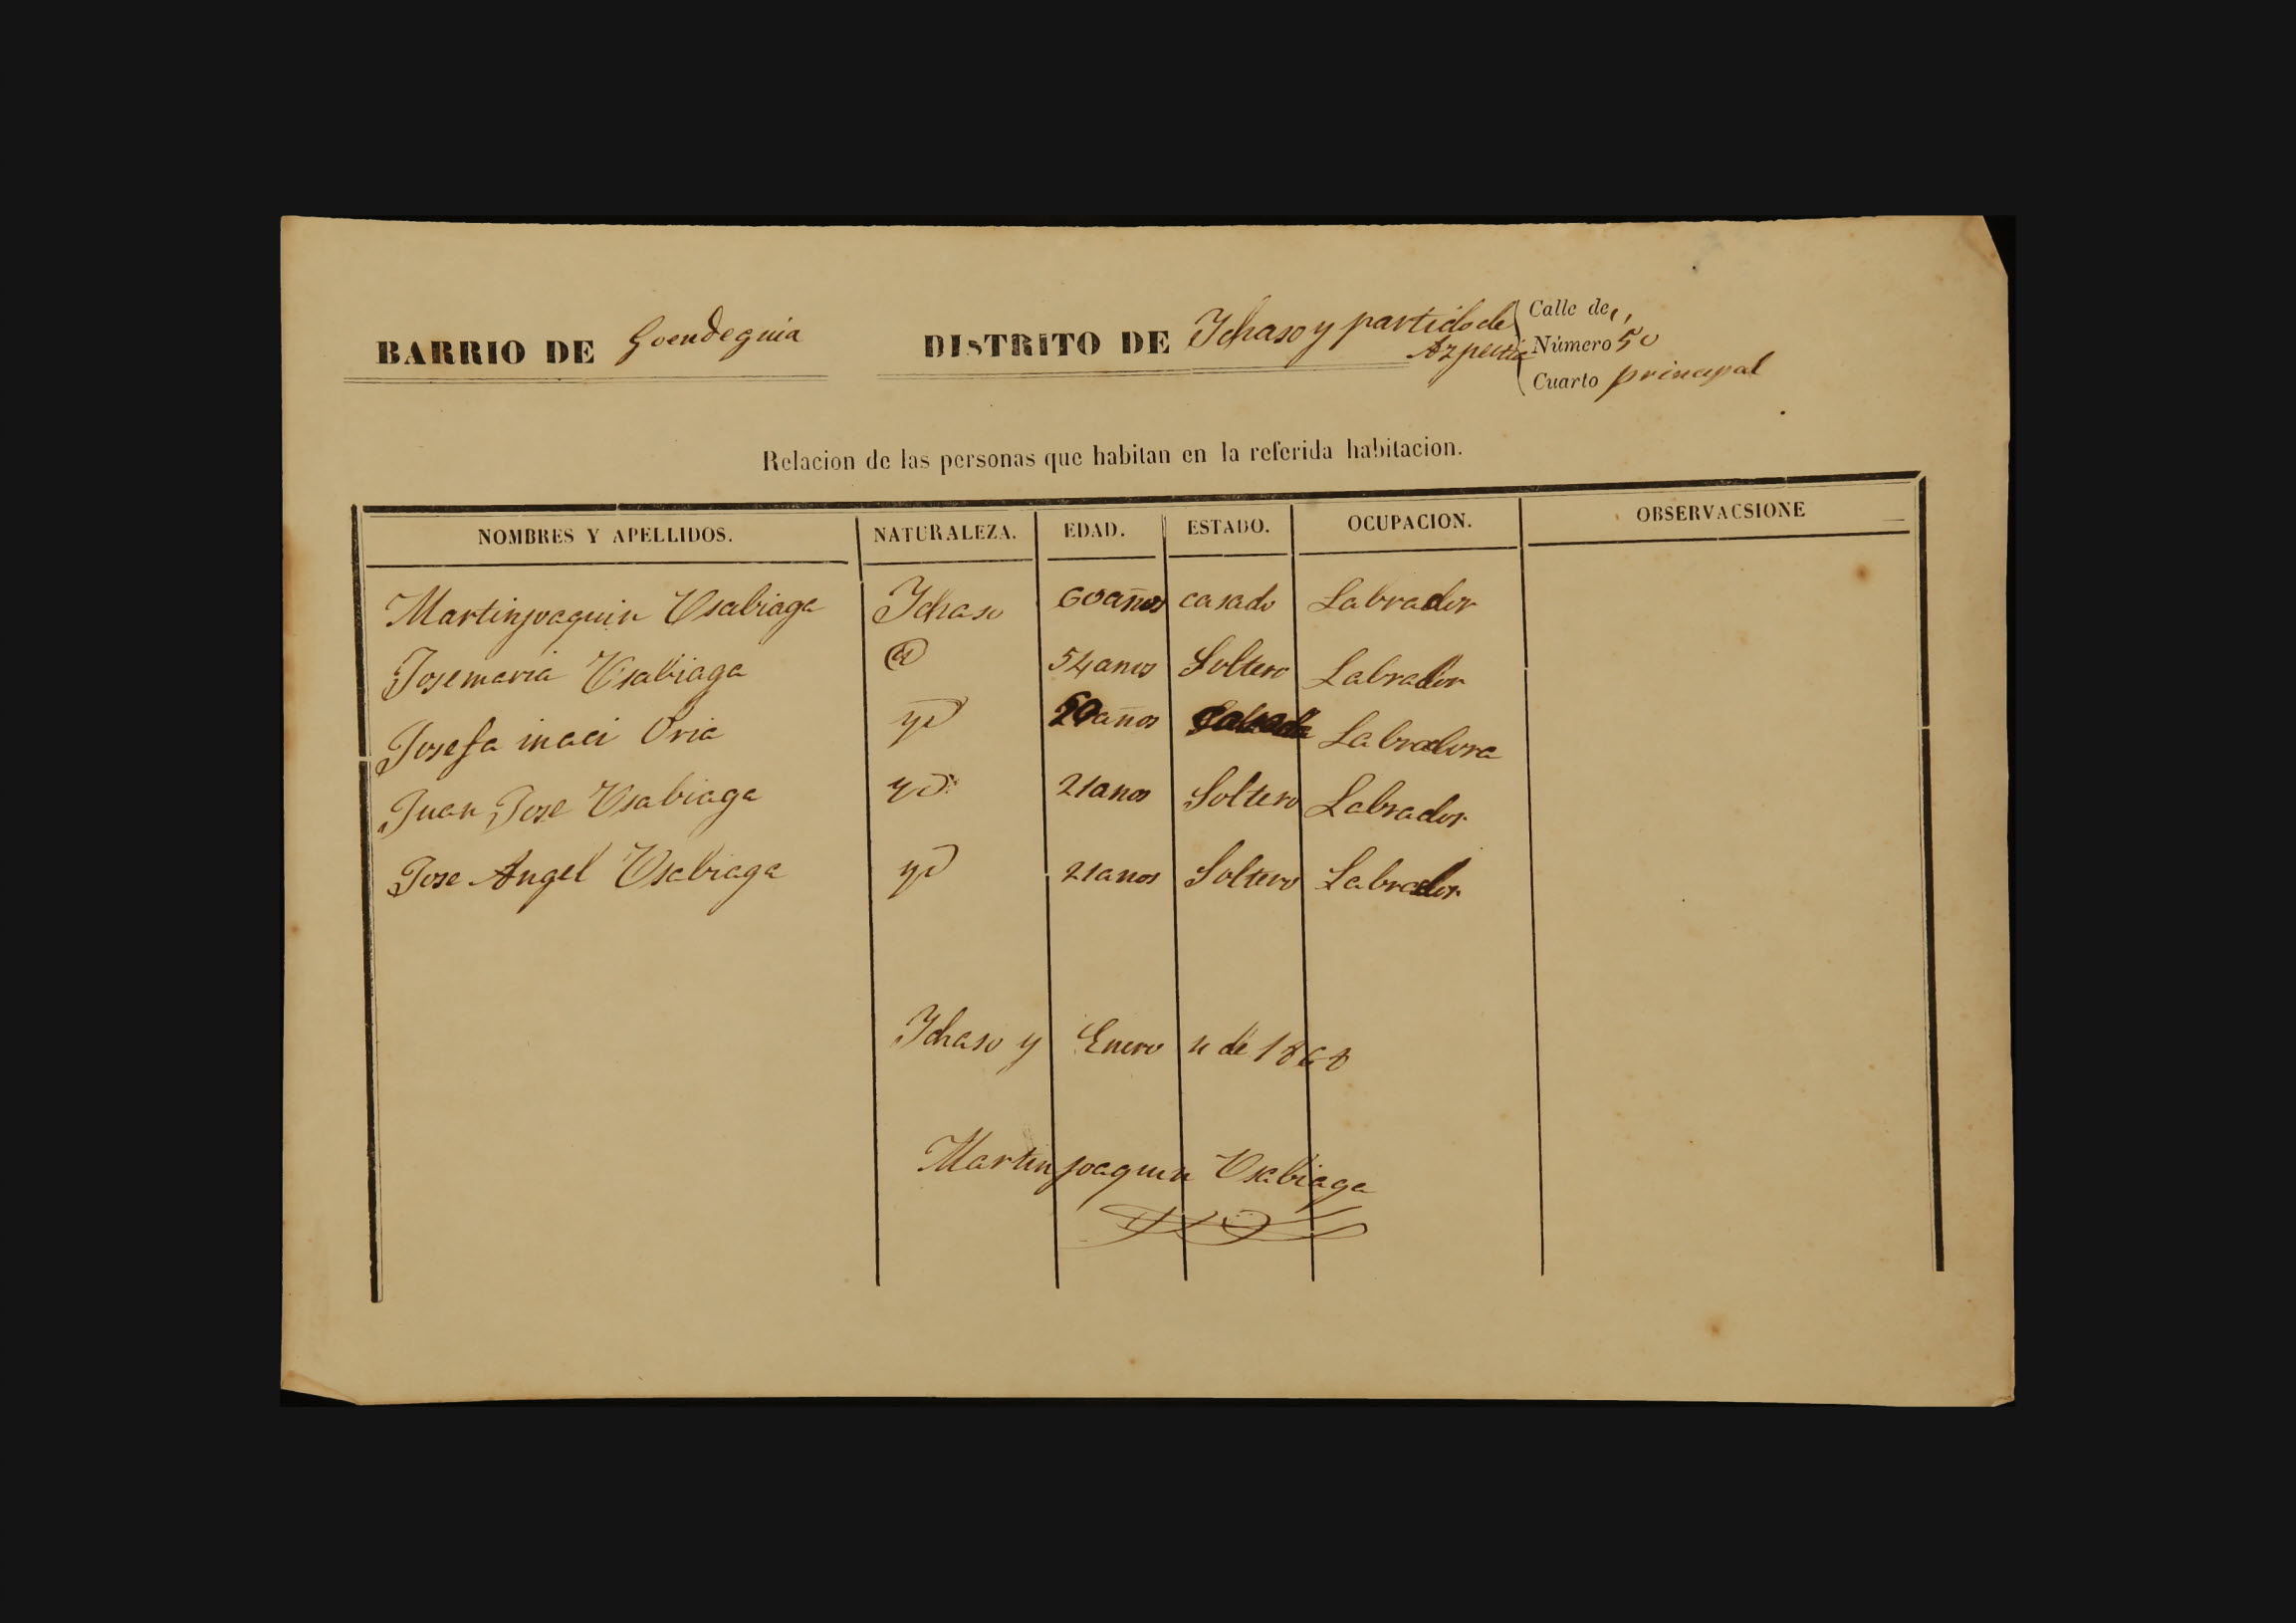 BARRIO DE Goendeguia DISTRITO DE Ichaso y partido de Azpeitia
Calle de ,,
Número 50
Cuarto principal
Relacion de las personas que habitan en la referida habitacion.
NOMBRES Y APELLIDOS. NATURALEZA. EDAD. ESTADO. OCUPACION. OBSERVACSIONE
Martinjoaquin Usabiaga Ichaso 60 años casado Labrador
Josemaria Usabiaga 54 anos Soltero Labrador
Josefa inaci Oria yd años Labradora
Juan Jose Usabiaga yd 21 anos Soltero Labrador
Jose Angel Usabiaga yd 21 anos Soltero Labrador
Ichaso y Enero de 1868
Martinjoaquin Usabiaga